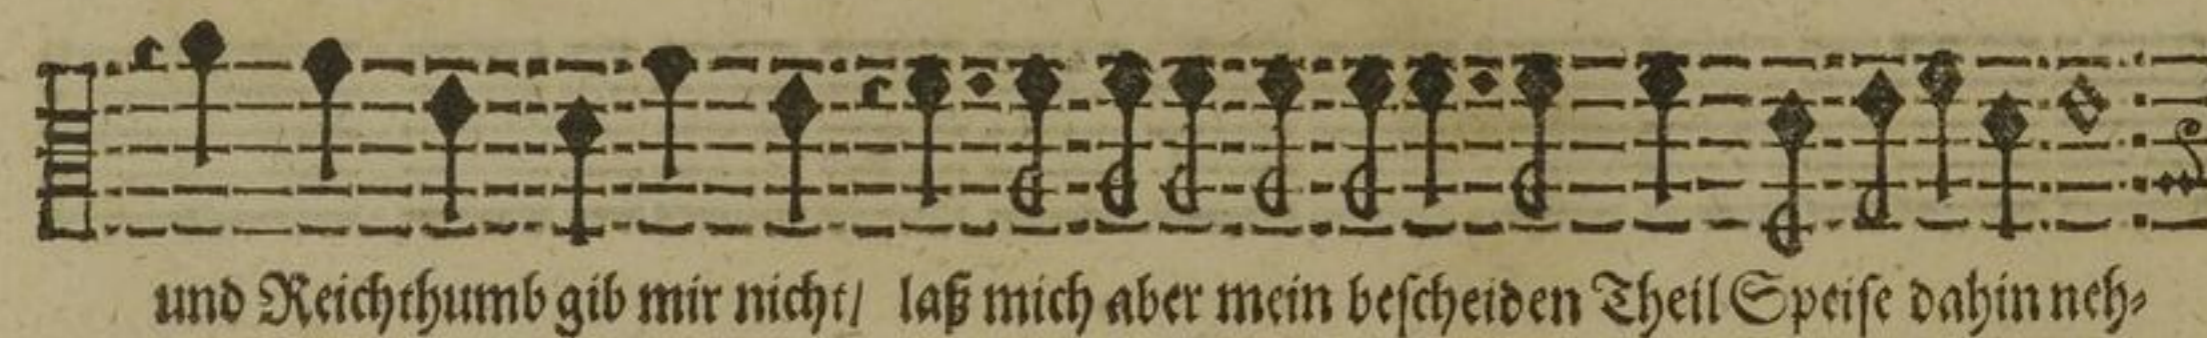 und Reichthumb gib mir nicht/ laß mich aber mein bescheiden Theil Speise dahin neh⸗